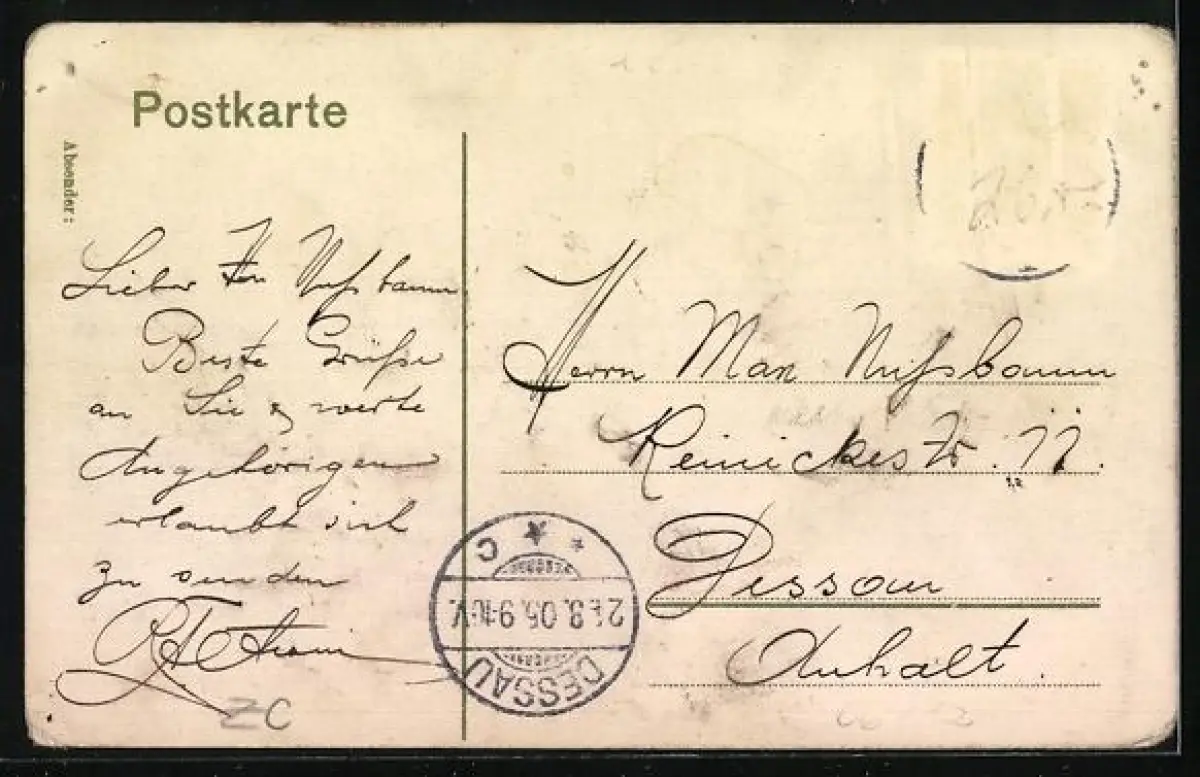 Postkarte
Absender:
Lieber Hrn Nußbaum
Beste Grüße
an Sie & werte
Angehörigen
erlaubt sich
zu senden
Herrn Max Nußbaum
Reinickestr. 11.
Dessau
Anhalt.
DESSAU
9-10V.
* * C
ZC